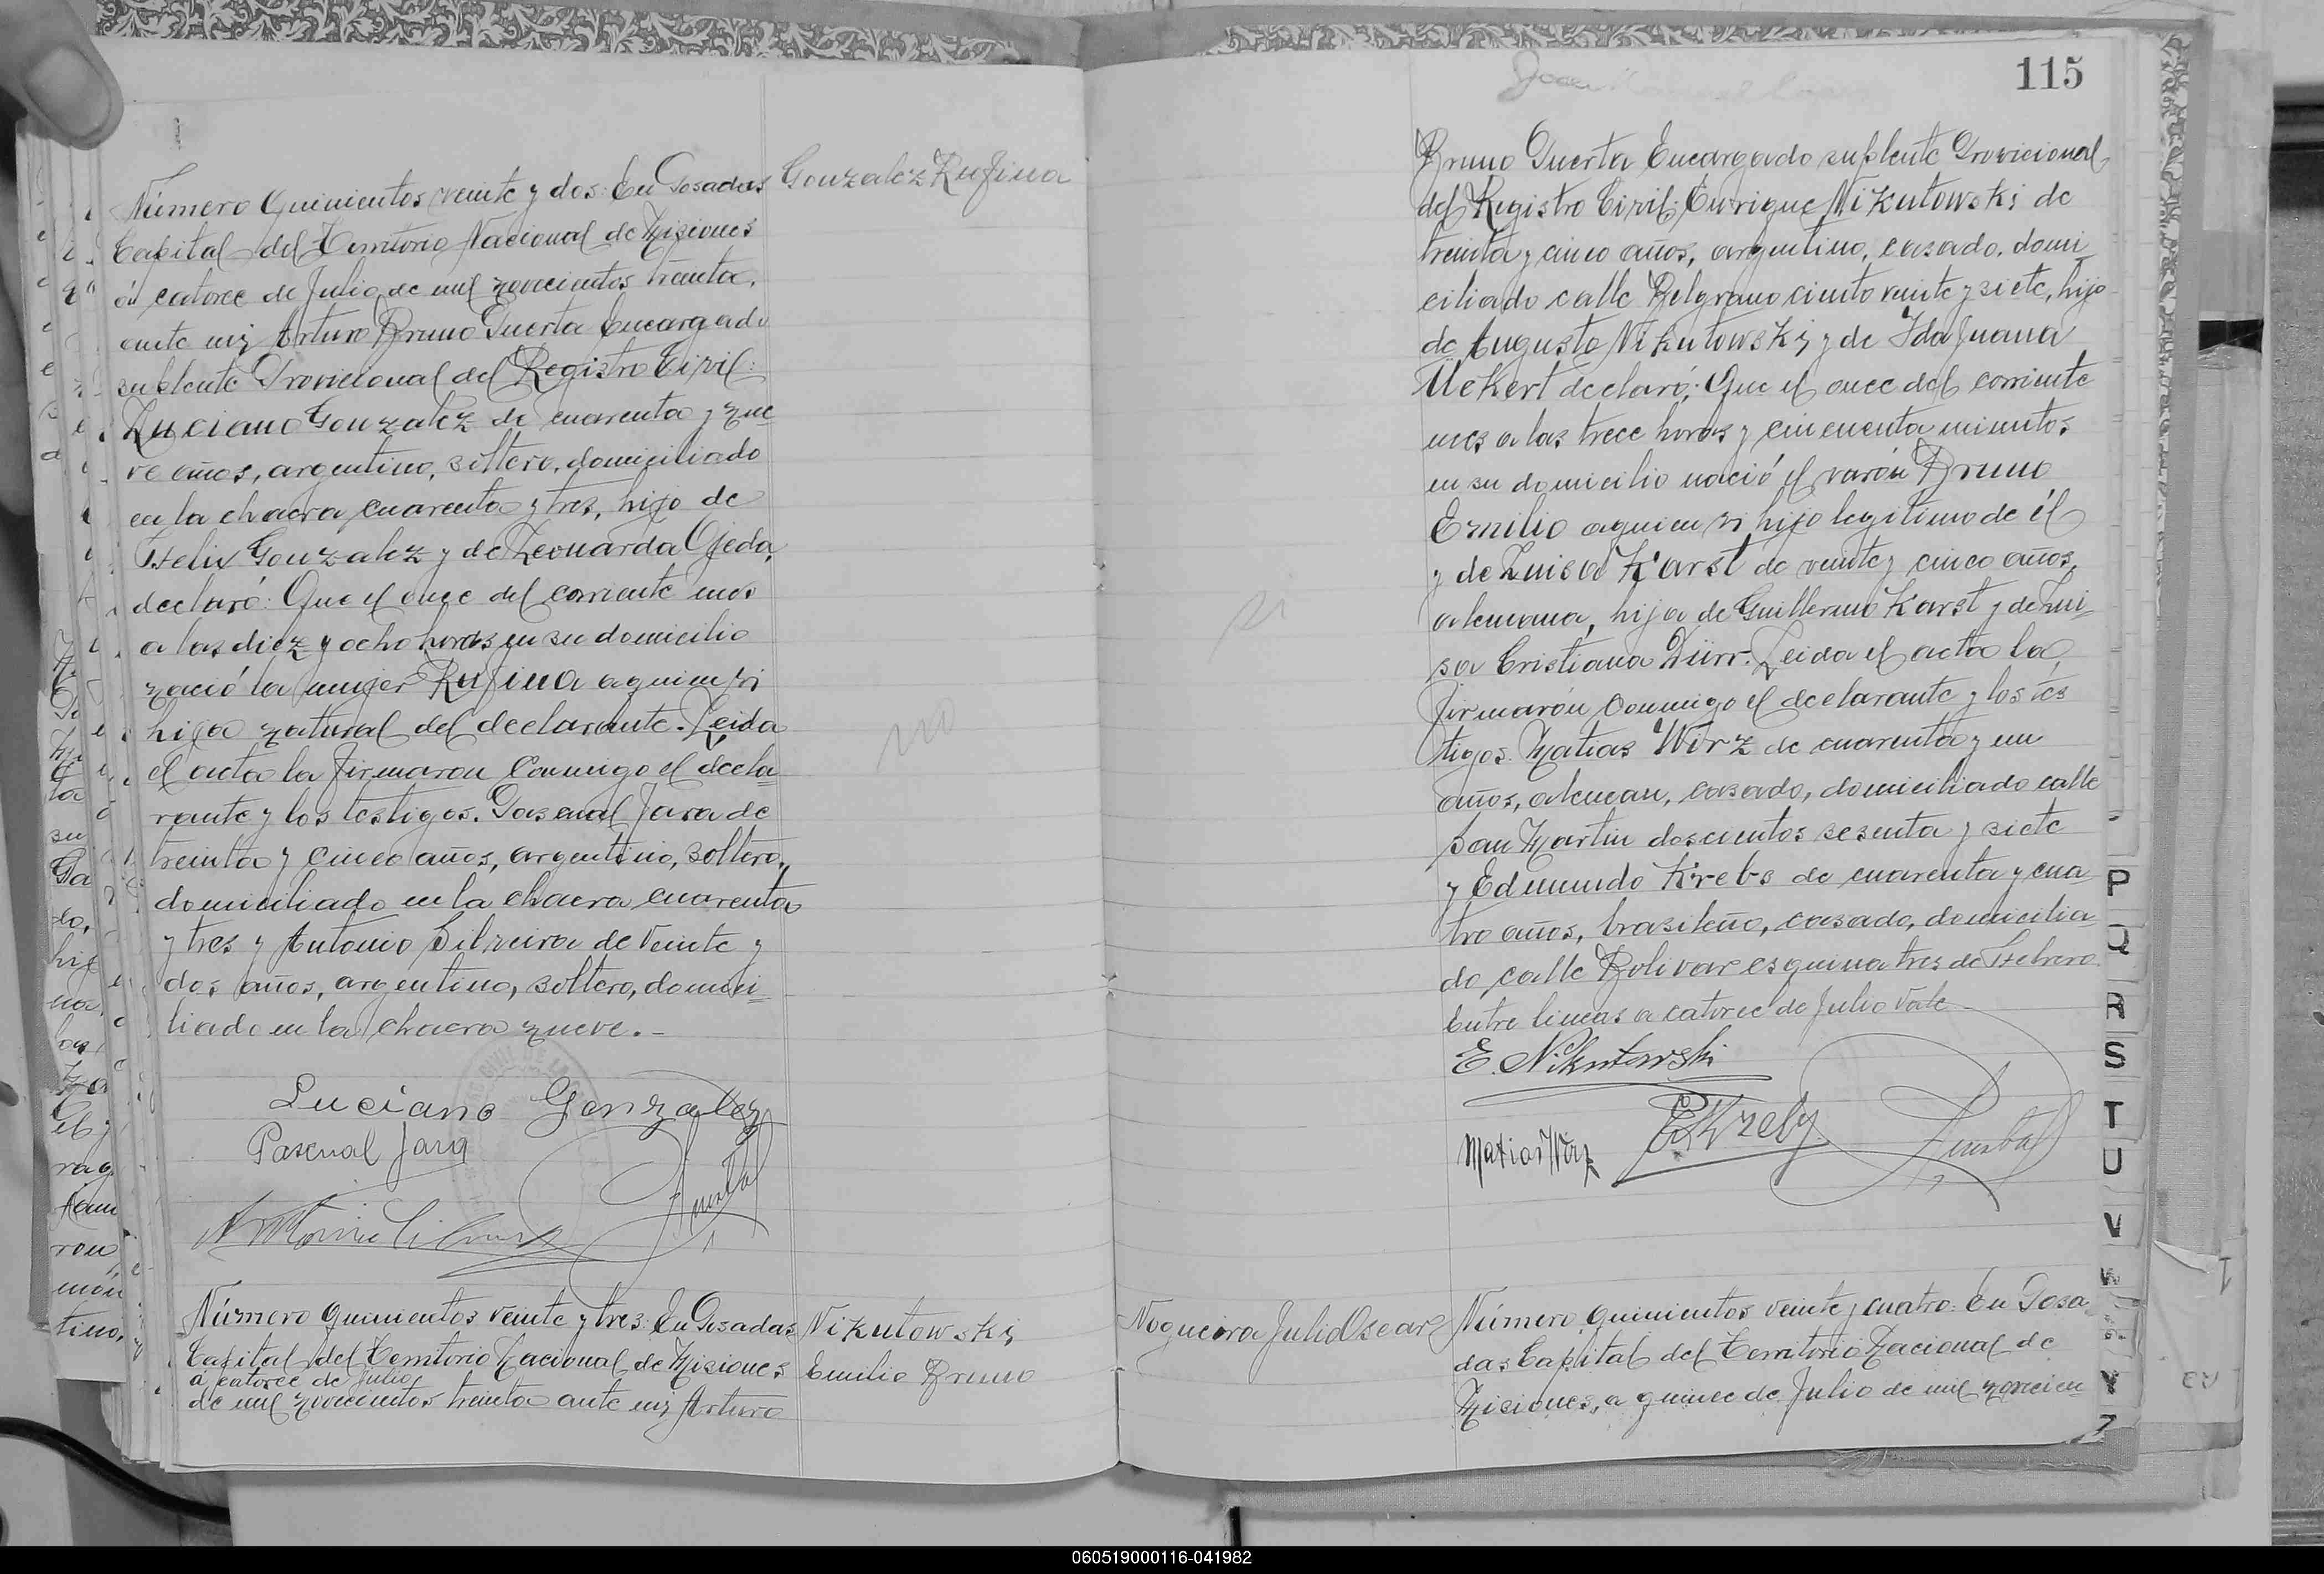 Número Quinientos veinte y dos: En Posadas
Capital del Territorio Nacional de Misiones
á catorce de Julio de mil novecientos treinta,
ante mi Arturo Bruno Puerta Encargado
suplente Provicional del Registro Civil:
Luciano Gonzalez de cuarenta y nue
ve años, argentino, soltero, domiciliado
en la chacra cuarenta y tres, hijo de
Felix Gonzalez y de Leonarda Ojeda,
declaró: Que el once del corriente mes
a las diez y ocho horas en su domicilio
nació la mujer Rufina a quien vi
hija natural del declarante. Leida
el acta la firmaron conmigo el decla=
rante y los testigos. Pascual Jara de
treinta y cinco años, argentino, soltero,
domiciliado en la chacra cuarenta
y tres y Antonio Silveira de veinte y
dos años, argentino, soltero, domici=
liado en la chacra nueve.-
Luciano Gonzalez
Pascual Jara
Gonzalez Rufina
Número quinientos veinte y tres: En Posadas
Capital del Territorio Nacional de Misiones
á catorce de Julio
de mil novecientos treinta ante mi Arturo
Nikutowski
Emilio Bruno
115
Bruno Puerta Encargado suplente Provicional
del Registro Civil: Enrique Nikutowski de
treinta y cinco años, argentino, casado, domi
ciliado calle Belgrano ciento veinte y siete, hijo
de Augusto Nikutowski y de Ida Juana
Uekert declaró: Que el once del corriente
mes a las trece horas y cincuenta minutos
en su domicilio nació el varón Bruno
Emilio a quien vi hijo legitimo de él
y de Luisa Karst de veinte y cinco años,
alemana, hija de Guillermo Karst y de Lui-
sa Cristiana Dürr. Leida el acta la
firmarón conmigo el declarante y los tes
tigos. Matias Wirz de cuarenta y un
años, aleman, casado, domiciliado calle
San Martin doscientos sesenta y siete
y Edmundo Krebs de cuarenta y cua
tro años, brasileño, casado, domicilia
do calle Bolivar esquina tres de Febrero.
Entre lineas a catorce de Julio Vale
E. Nikutowski
Matias Wirz
E. Krebs
Nogueira Julio Oscar
Número quinientos veinte y cuatro: En Posa
das Capital del Territorio Nacional de
Misiones, a quince de Julio de mil novecien
P
Q
R
S
T
U
V
W
Y
Z
060519000116-041982